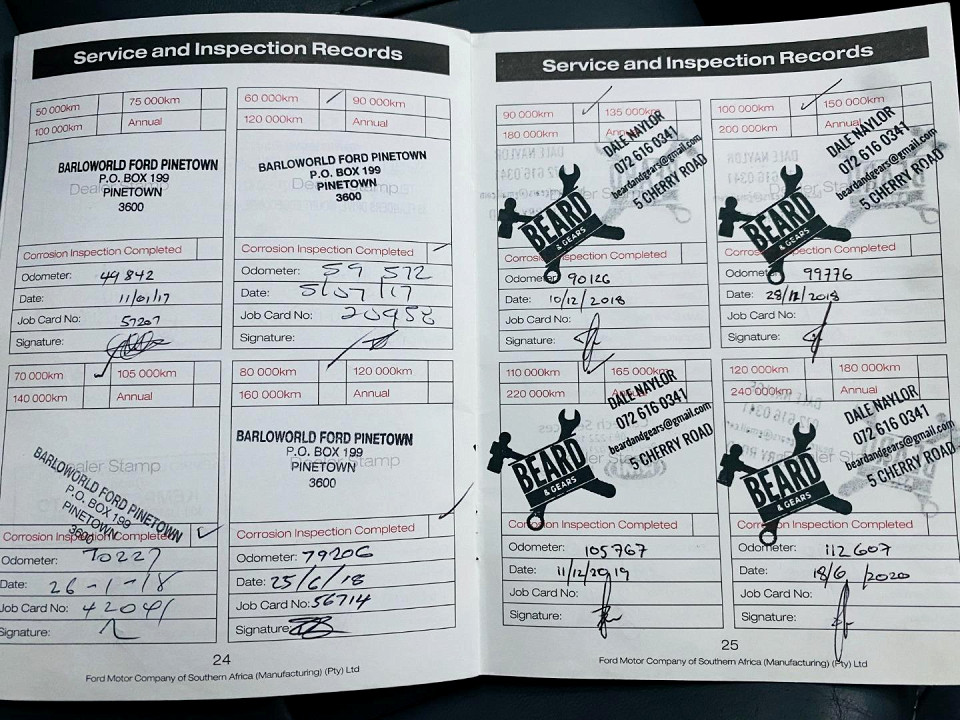 Service and Inspection Records
50 000km 75 000km
100 000km Annual
BARLOWORLD FORD PINETOWN
P.O. BOX 199
PINETOWN
3600
Corrosion Inspection Completed
Odometer: 49842
Date: 11/01/17
Job Card No: 57207
Signature:
60 000km 90 000km
120 000km Annual
BARLOWORLD FORD PINETOWN
P.O. BOX 199
PINETOWN
Dealer Stamp
3600
Corrosion Inspection Completed
Odometer: 59 572
Date: 5/07/17
Job Card No: 20458
Signature:
70 000km 105 000km
140 000km Annual
Dealer Stamp
BARLOWORLD FORD PINETOWN
P.O. BOX 199
PINETOWN
3600
Corrosion Inspection Completed
Odometer: 70227
Date: 26-1-18
Job Card No: 42041
Signature:
80 000km 120 000km
160 000km Annual
BARLOWORLD FORD PINETOWN
P.O. BOX 199
Dealer Stamp
PINETOWN
3600
Corrosion Inspection Completed
Odometer: 79206
Date: 25/6/18
Job Card No: 56714
Signature:
24
Ford Motor Company of Southern Africa (Manufacturing) (Pty) Ltd
Service and Inspection Records
90 000km 135 000km
180 000km Annual
DALE NAYLOR
072 616 0341
beardandgears@gmail.com
5 CHERRY ROAD
BEARD
& GEARS
Corrosion Inspection Completed
Odometer: 90126
Date: 10/12/2018
Job Card No:
Signature:
100 000km 150 000km
200 000km Annual
DALE NAYLOR
072 616 0341
beardandgears@gmail.com
5 CHERRY ROAD
BEARD
& GEARS
Corrosion Inspection Completed
Odometer: 99776
Date: 28/12/2018
Job Card No:
Signature:
110 000km 165 000km
220 000km Annual
DALE NAYLOR
072 616 0341
beardandgears@gmail.com
5 CHERRY ROAD
BEARD
& GEARS
Corrosion Inspection Completed
Odometer: 105767
Date: 11/12/2019
Job Card No:
Signature:
120 000km 180 000km
240 000km Annual
DALE NAYLOR
072 616 0341
beardandgears@gmail.com
5 CHERRY ROAD
BEARD
& GEARS
Corrosion Inspection Completed
Odometer: 112607
Date: 18/6/2020
Job Card No:
Signature:
25
Ford Motor Company of Southern Africa (Manufacturing) (Pty) Ltd